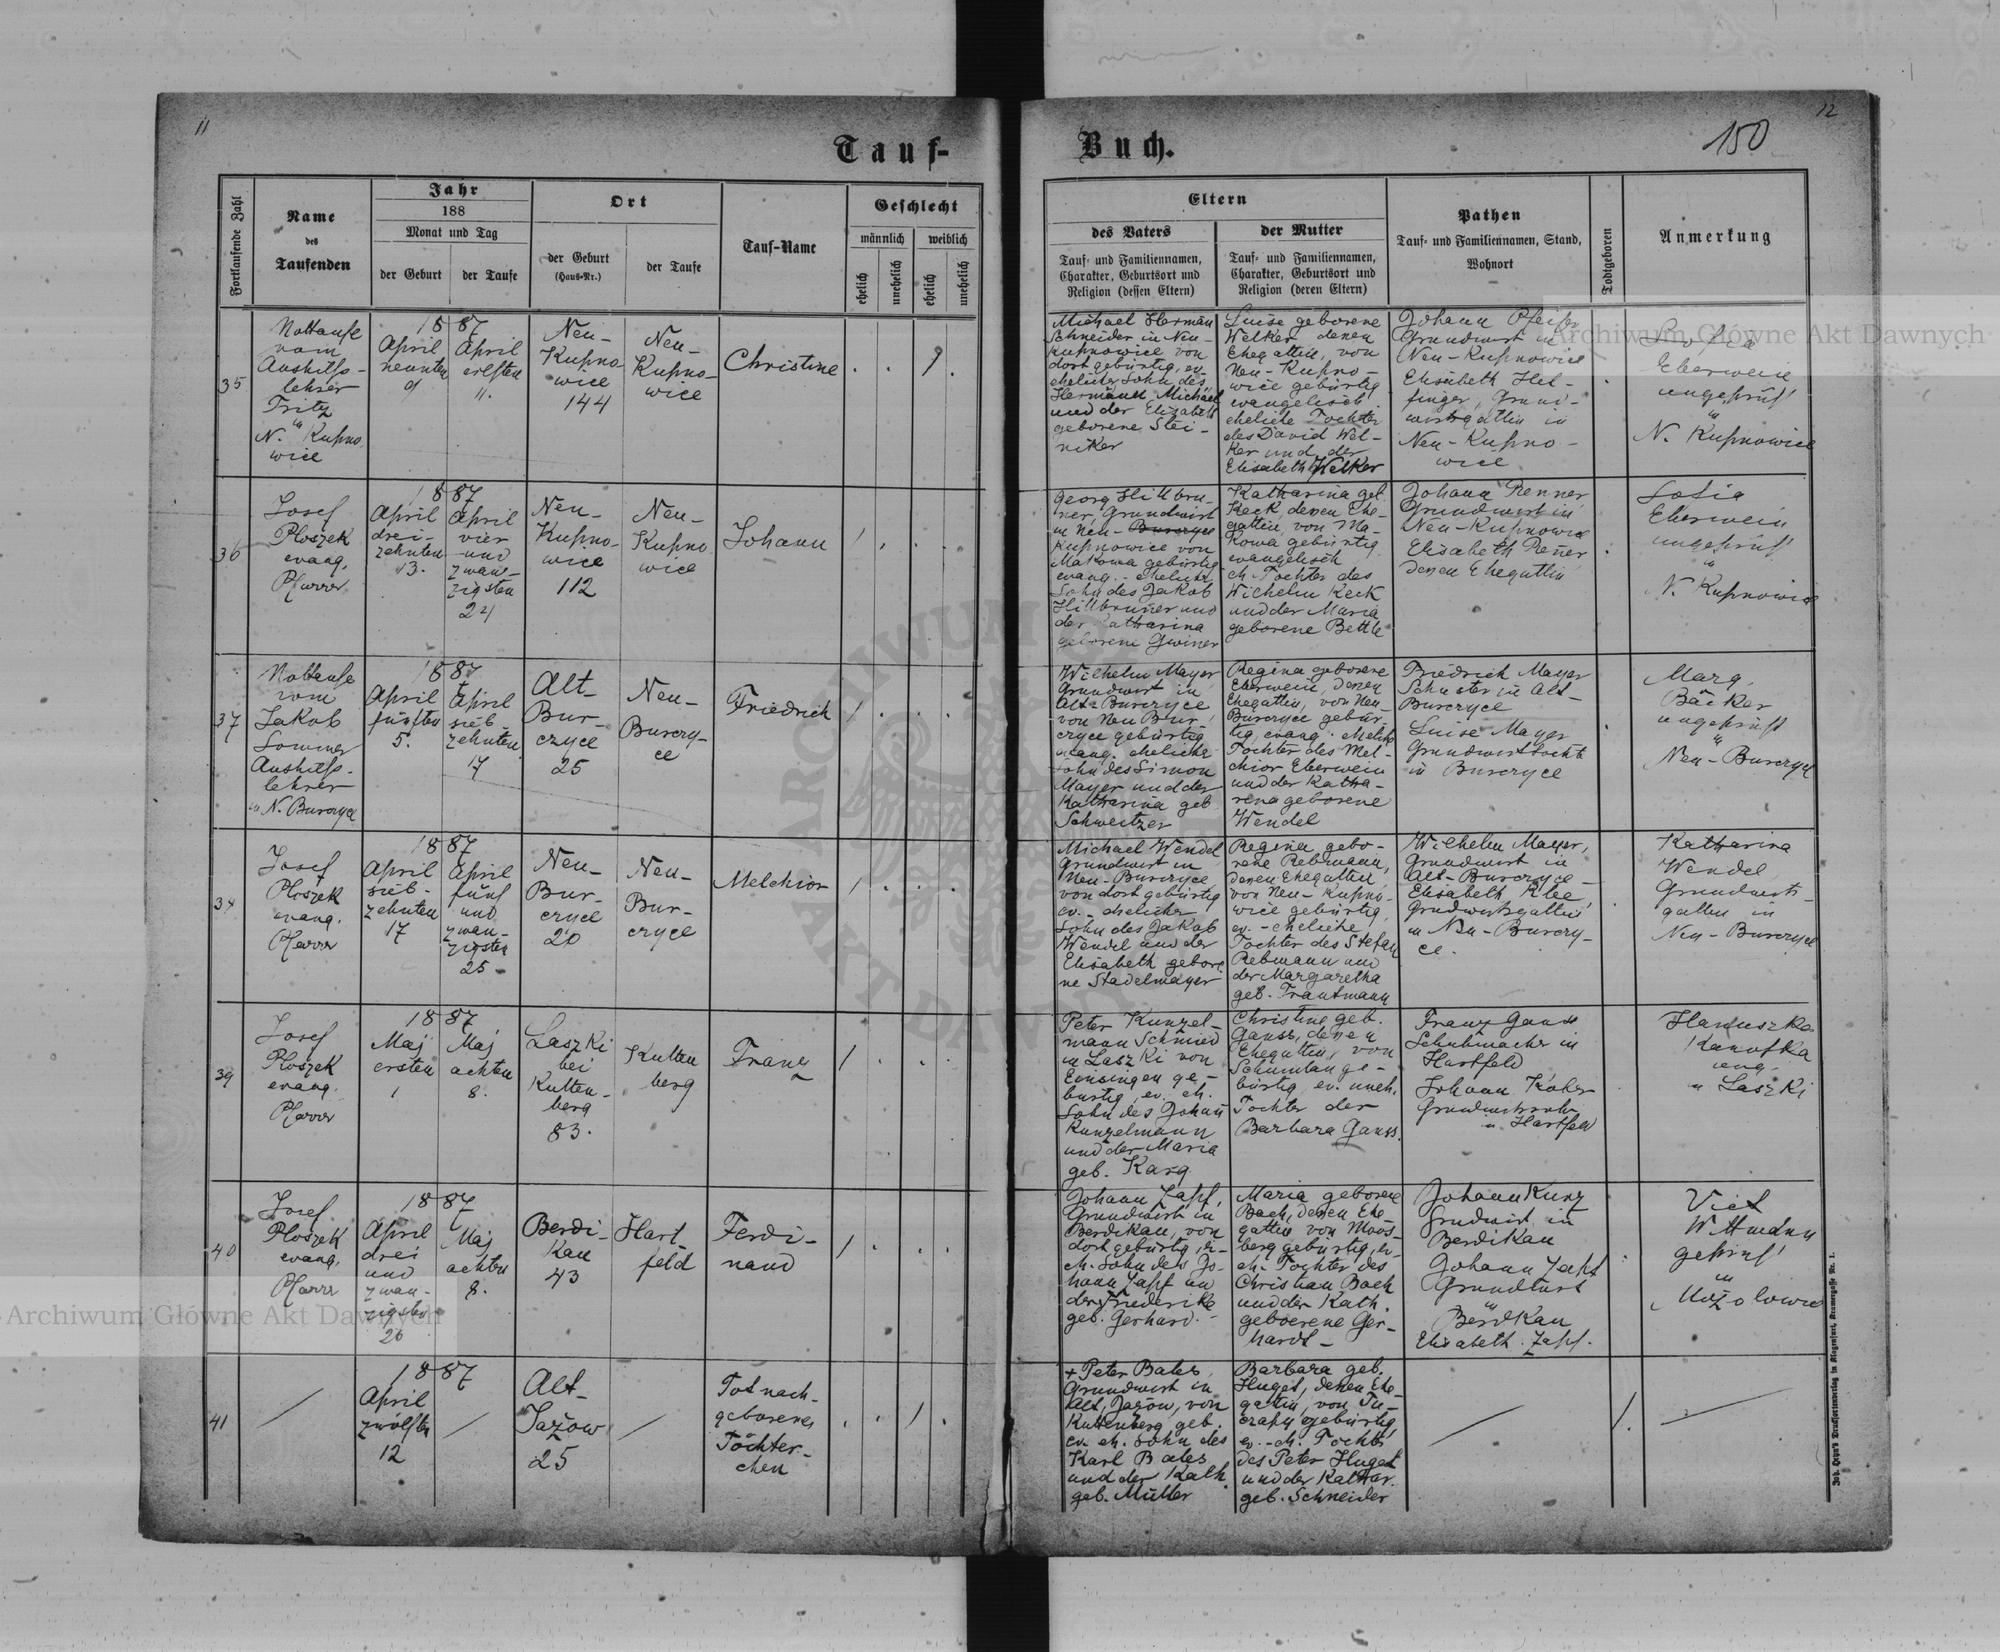 11
12
150
Tauf-
Buch.
Fortlaufende Zahl
Name
des
Taufenden
Jahr
188
Monat und Tag
der Geburt
der Taufe
Ort
der Geburt
(Haus-Nr.)
der Taufe
Tauf-Name
Geschlecht
männlich
weiblich
ehelich
unehelich
ehelich
unehelich
Eltern
des Vaters
Tauf- und Familiennamen,
Charakter, Geburtsort und
Religion (dessen Eltern)
der Mutter
Tauf- und Familiennamen,
Charakter, Geburtsort und
Religion (deren Eltern)
Pathen
Tauf- und Familiennamen, Stand,
Wohnort
Todtgeboren
Anmerkung
35
Nottaufe
vom
Aushilfs-
lehrer
Fritz
in
N. Kupno
wice
1887
April
neunten
9
April
elften
11.
Neu-
Kupno-
wice
144
Neu-
Kupno-
wice
Christine
Michael Herman
Schneider in Neu-
Kupnowice von
dort gebürtig, ev.
ehelicher Sohn des
Hermann Michael
und der Elisabeth
geborene Stei-
niker
Luise geborene
Welker denen
Ehegattin, von
Neu-Kupno-
wice gebürtig
evangelisch
eheliche Tochter
des David Wel-
ker und der
Elisabeth Welker
Johann Pfeifer
Grundwirt in
Neu-Kupnowice
Elisabeth Hel-
finger, Grund-
wirtsgattin in
Neu-Kupno-
wice
Sofia
Eberwein
ungeprüf
in
N. Kupnowice
36
Josef
Ploszek
evang.
Pfarrer
1887
April
drei-
zehnten
13.
April
vier
und
zwan-
zigsten
24
Neu-
Kupno-
wice
112
Neu-
Kupno
wice
Johann
Georg Hillbru-
ner, Grundwirt
in Neu-Burczyce
Kupnowice von
Makowa gebürtig
evang. - ehelicher
Sohn des Jakob
Hillbruner und
der Katharina
geborene Gwiner
Katharina geb.
Keck denen Ehe-
gattin, von Ma-
kowa gebürtig
evangelisch
eh. Tochter des
Wilhelm Keck
und der Maria
geborene Bettle
Johann Renner
Grundwirt in
Neu-Kupnowice
Elisabeth Renner
denen Ehegattin
Sofia
Eberwein
ungeprüf
in
N. Kupnowice
37
Nottaufe
vom
Jakob
Sommer
Aushilfs-
lehrer
in N. Burczyce
1887
April
fünften
5.
April
sieb-
zehnten
17
Alt-
Bur-
czyce
25
Neu-
Burczy-
ce
Friedrich
Wilhelm Mayer
Grundwirt in
Alt-Burczyce
von Neu Bur-
czyce gebürtig
evang. ehelicher
Sohn des Simon
Mayer und der
Katharina geb
Schweitzer
Regina geborene
Eberwein, denen
Ehegattin, von Neu-
Burczyce gebür-
tig, evang. eheliche
Tochter des Mel-
chior Eberwein
und der Katha-
rena geborene
Wendel
Friedrich Mayer
Schuster in Alt-
Burczyce
Luise Mayer
Grundwirtstochte
in Burczyce
Marg.
Bäcker
ungeprüft
in
Neu-Burczyce
38
Josef
Ploszek
evang.
Pfarrer
1887
April
sieb-
zehnten
17
April
fünf
und
zwan-
zigsten
25
Neu-
Bur-
czyce
20
Neu-
Bur-
czyce
Melchior
Michael Wendel
Grundwirt in
Neu-Burczyce
von dort gebürtig
ev. - ehelicher
Sohn des Jakob
Wendel und der
Elisabeth gebore
ne Stadelmayer
Regina gebo-
rene Rebmann,
denen Ehegattin
von Neu-Kupno-
wice gebürtig
ev. - eheliche
Tochter des Stefan
Rebmann und
der Margaretha
geb. Trautmann
Wilhelm Mayer,
Grundwirt in
Alt-Burczyce-
Elisabeth Klee
Grundwirtsgattin
in Neu-Burczy-
ce.
Katharina
Wendel
Grundwirts
gattin in
Neu-Burczyce
39
Josef
Ploszek
evang.
Pfarrer
1887
Maj
ersten
1
Maj
achten
8.
Laszki
bei
Kutten-
berg
83.
Kutten
berg
Franz
Peter Kunzel-
mann Schmied
in Laszki von
Einsingen ge-
bürtig, ev. eh.
Sohn des Johann
Kunzelmann
und der Maria
geb. Karg
Christine geb.
Ganss, denen
Ehegattin, von
Schumlau ge-
bürtig, ev. uneh.
Tochter der
Barbara Ganss.
Franz Ganss
Schuhmacher in
Hartfeld
Johann Koher
Grundwirtssohn
in Hartfeld
Hanuszka
Kanofka
in Laszki
40
Josef
Ploszek
evang.
Pfarrer
1887
April
drei
und
zwan-
zigsten
26
Maj
achten
8.
Berdi-
kau
43
Hart
feld
Ferdi-
nand
Johann Zapf,
Grundwirt in
Berdikau, von
dort gebürtig, ev-
eh. Sohn des Jo-
hann Zapf und
der Friederike
geb. Gerhard.
Maria geborene
Bach, denen Ehe
gattin von Moos-
berg gebürtig, ev-
eh. Tochter des
Christian Bach
und der Kath.
geboerene Ger-
hardt-
Johann Kunz
Grundwirt in
Berdikau
Johann Zapf
Grundwirt
in
Berdikau
Elisabeth Zapf.
Viet
Wittmann
geprüf
in
41
1887
April
zwölften
12
Alt-
Jazow
25
Tot nach-
geborenes
Töchter-
chen
+ Peter Bales
Grundwirt in
Alt, Jazow, von
Kuttenberg geb.
ev. eh. Sohn des
Karl Bales
und der Kath.
geb. Müller
Barbara geb.
Huget, denen Ehe-
gattin, von Tu-
czapy gebürtig
ev. - eh. Tochter
des Peter Huget
und der Kathar.
geb. Schneider
Joh. Heyn's Drucksortenverlag in Klagenfurt, Kramergasse Nr. 1.
Archiwum Główne Akt Dawnych
Archiwum Główne Akt Dawnych
ARCHIWUM
AKT DAWNYCH